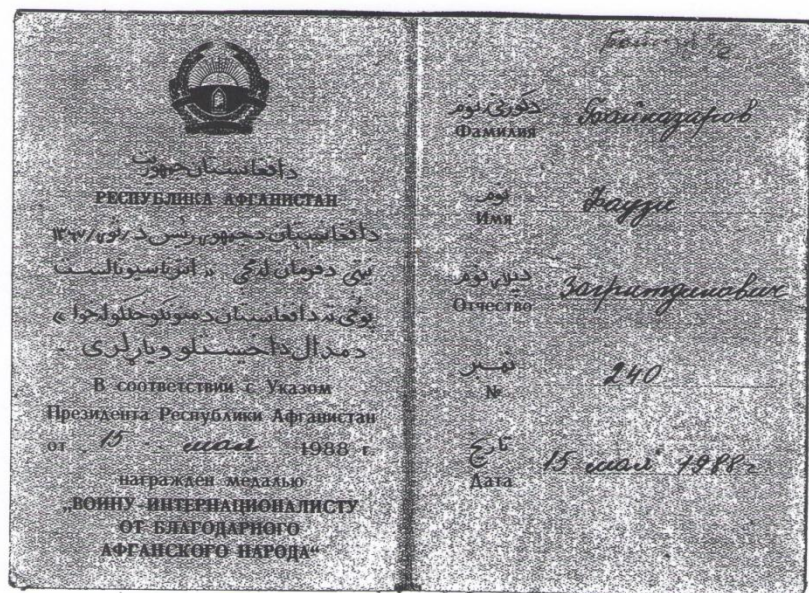 د افغانستان جمهوریت
РЕСПУБЛИКА АФГАНИСТАН
د افغانستان د جمهور رئیس د
د افغانستان د
د مدال داخیستلو ویاړ لری
В соответствии с Указом
Президента Республики Афганистан
от 15 мая 1988 г.
награжден медалью
„ВОИНУ-ИНТЕРНАЦИОНАЛИСТУ
ОТ БЛАГОДАРНОГО
АФГАНСКОГО НАРОДА“
د کورنۍ نوم
Фамилия Байназаров
نوم
Имя Фаузи
د پلار نوم
Отчество Загритдинович
نمبر
№ 240
تاریخ
Дата 15 мая 1988 г